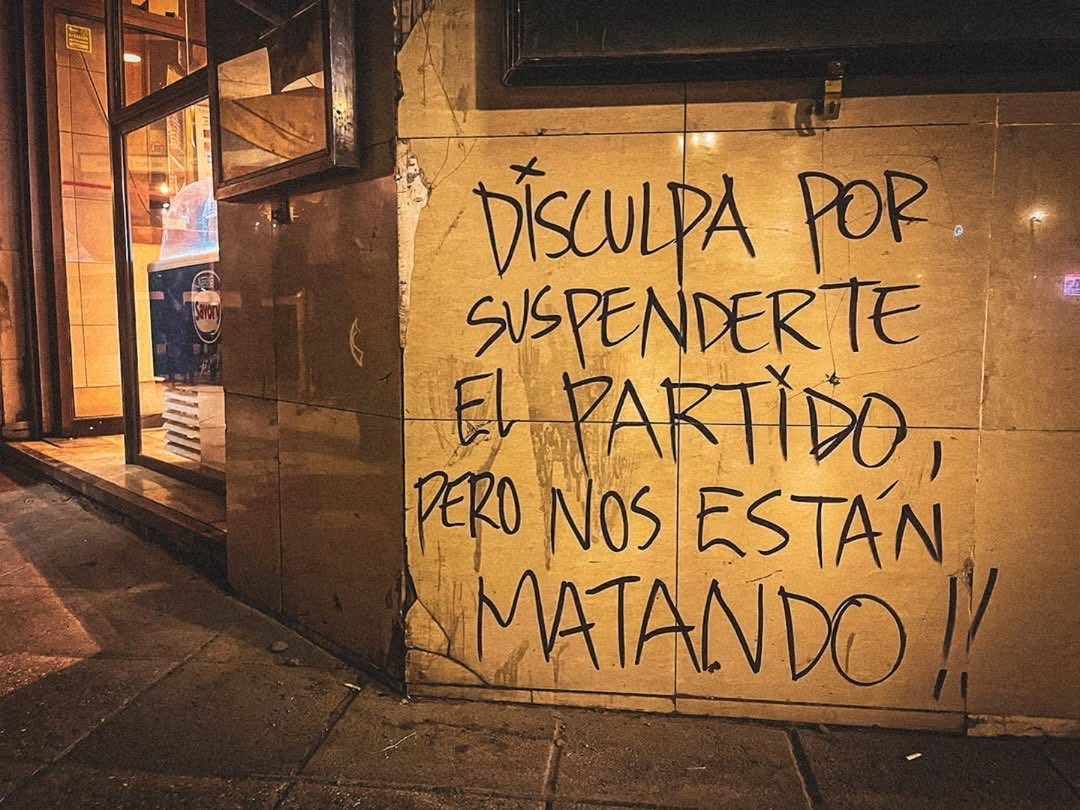 Savory
DISCULPA POR
SUSPENDERTE
EL PARTIDO,
PERO NOS ESTÁN
MATANDO!!